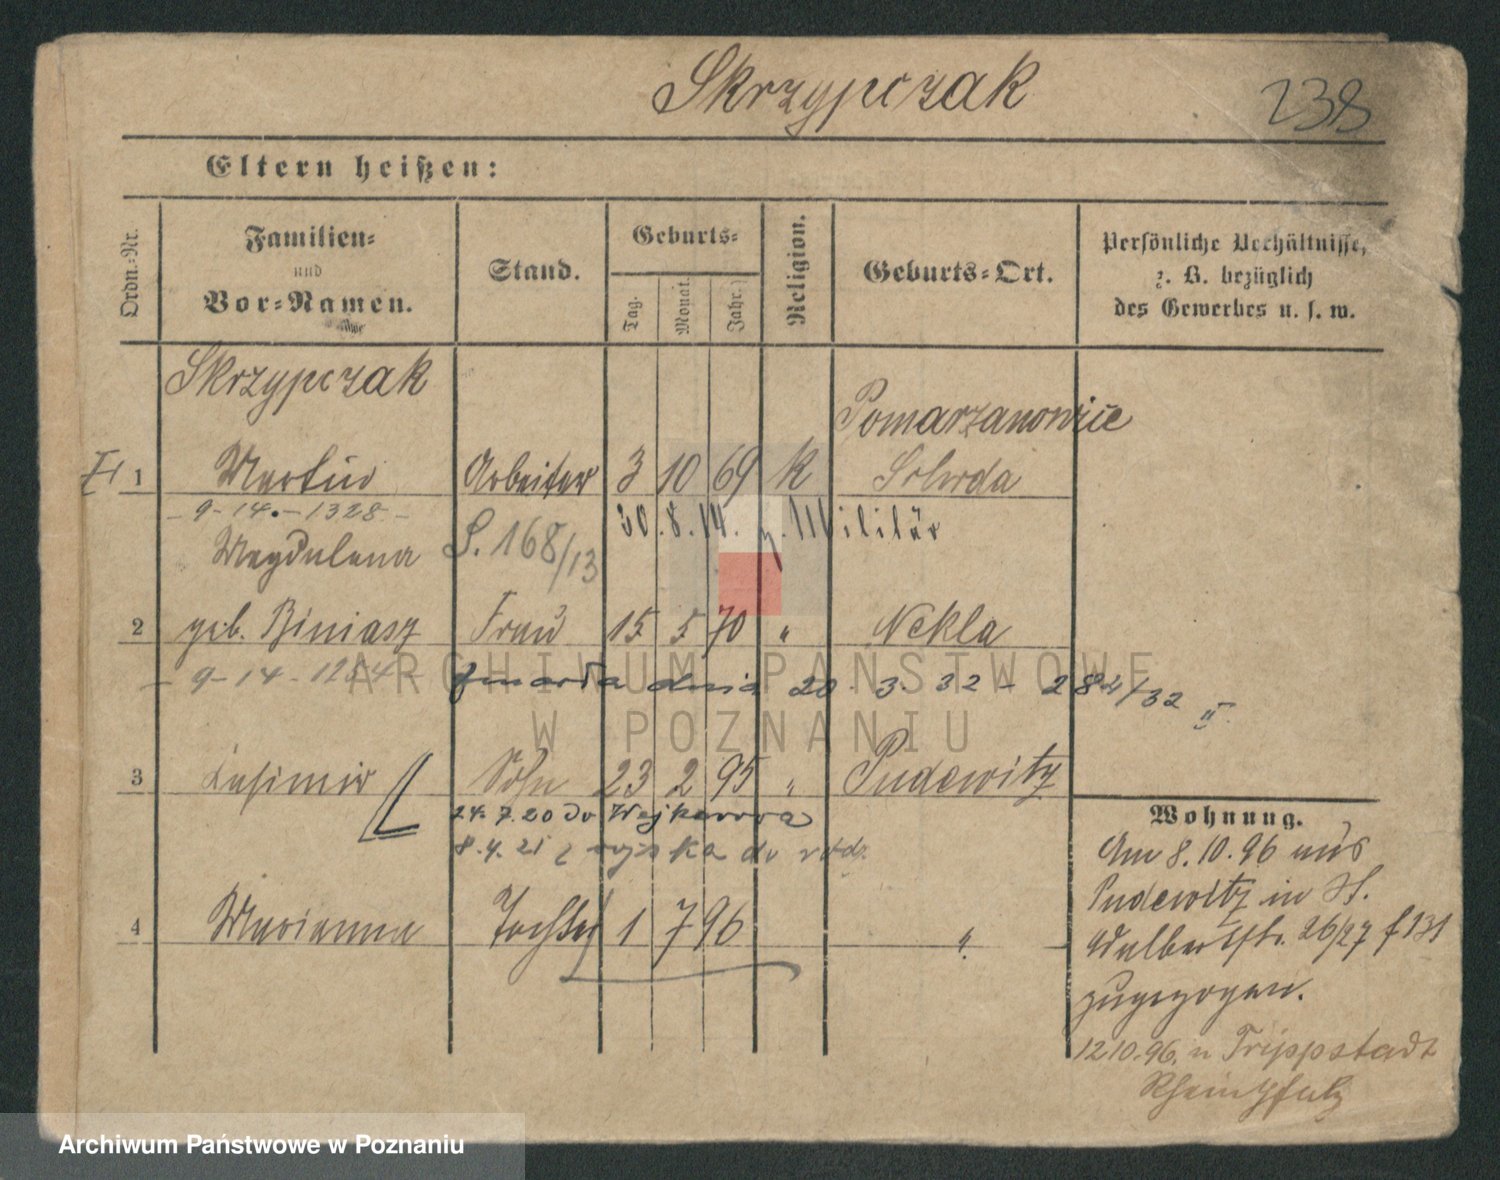 Skrzypczak
238
Eltern heißen:
Ordn.-Nr.
Familien- und Vor-Namen.
Stand.
Geburts-
Tag.
Monat.
Jahr.
Religion.
Geburts-Ort.
Persönliche Verhältnisse, z. B. bezüglich des Gewerbes u. s. w.
Skrzypczak
Pomarzanowice
1 Martin Arbeiter 3 10 69 K Schroda
- 9 - 14 - 1328 -
30. 8. 14. z. Militär
Magdalena S. 168/13
2 geb. Biniasz Frau 15 5 70 " Nekla
- 9 - 14 - zmarła dnia 20. 3. 32 - 284/32 II
3 Kasimir Sohn 23 2 95 " Pudewitz
24. 7. 20 do
8. 4. 21 z wojska do
4 Marianna Tochter 1 7 96 "
Wohnung.
Am 8.10.96 aus
Pudewitz in H.
Adalbertstr. 26/27 f 131
zugezogen.
12.10.96. n Trippstadt
Rheinpfalz
ARCHIWUM PAŃSTWOWE
W POZNANIU
Archiwum Państwowe w Poznaniu